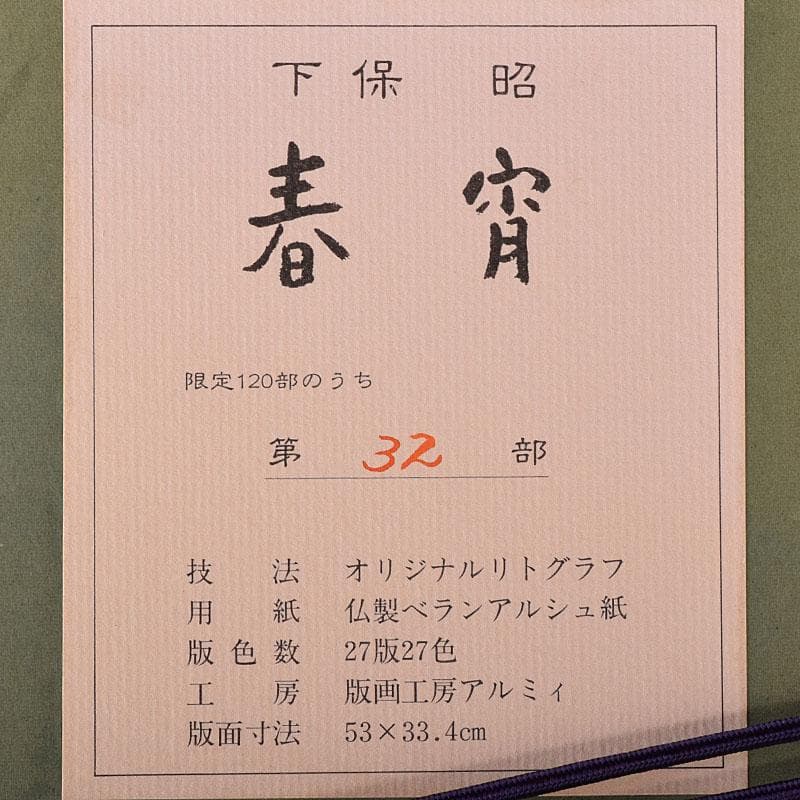 下保 昭
春宵
限定120部のうち
第 32 部
技法 オリジナルリトグラフ
用紙 仏製ベランアルシュ紙
版色数 27版27色
工房 版画工房アルミィ
版面寸法 53×33.4cm